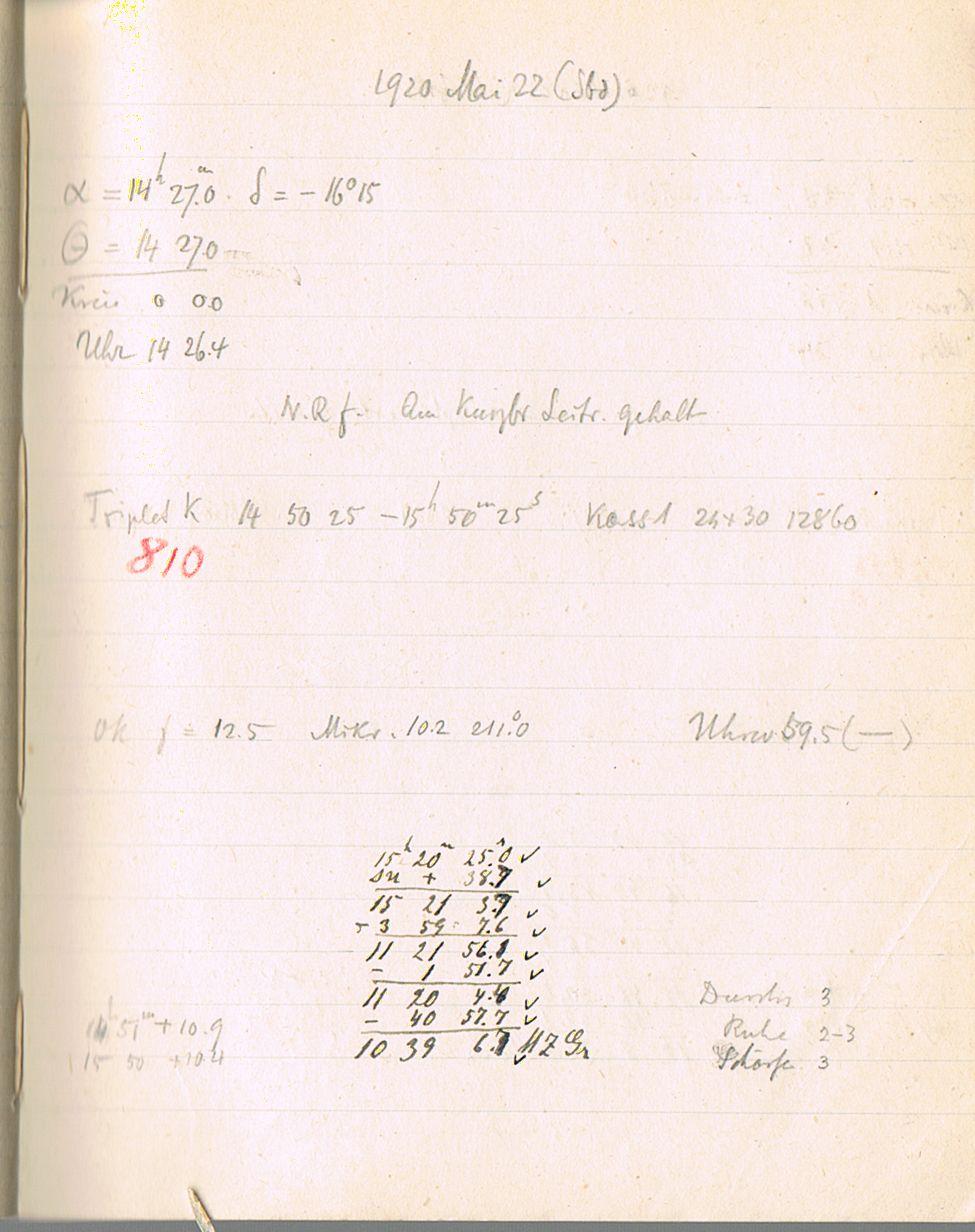 1920 Mai 22 (Sbd)
α = 14ʰ 27.ᵐ0 δ = - 16°15
Θ = 14 27.0
Kreis 0 0.0
Uhr 14 26.4
N.R f. Am Leitr. gehalt
Triplet K 14 50 25 - 15ʰ 50ᵐ 25ˢ Kass 1 24x30 12860
810
Ok f = 12.5 Mikr. 10.2 211.°0 Uhrw 59.5 (—)
15ʰ 20ᵐ 25.ˢ0 ✓
Δu + 38.7 ✓
15 21 3.7 ✓
- 3 59 7.6 ✓
11 21 56.1 ✓
- 1 51.7 ✓
11 20 4.4 ✓
- 40 57.7 ✓
10 39 6.7 MZ Gr ✓
14ʰ 51ᵐ + 10.9
15 50 + 10.4
Durchs 3
Ruhe 2-3
Schärfe 3